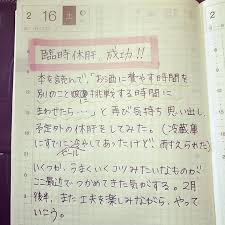 2 16 土
臨時休肝、成功!!
本を読んで、「お酒に費やす時間を
別のこと に挑戦する時間に
まわせたら…」と再び気持ち思い出し、
予定外の休肝をしてみた。(冷蔵庫
にすでに冷やしてあったけど 耐えられた)
ビール
いくつか、うまくいくコツみたいなものが
ここ最近でつかめてきた気がする。2月
後半、また工夫を楽しみながら、やって
いこう。